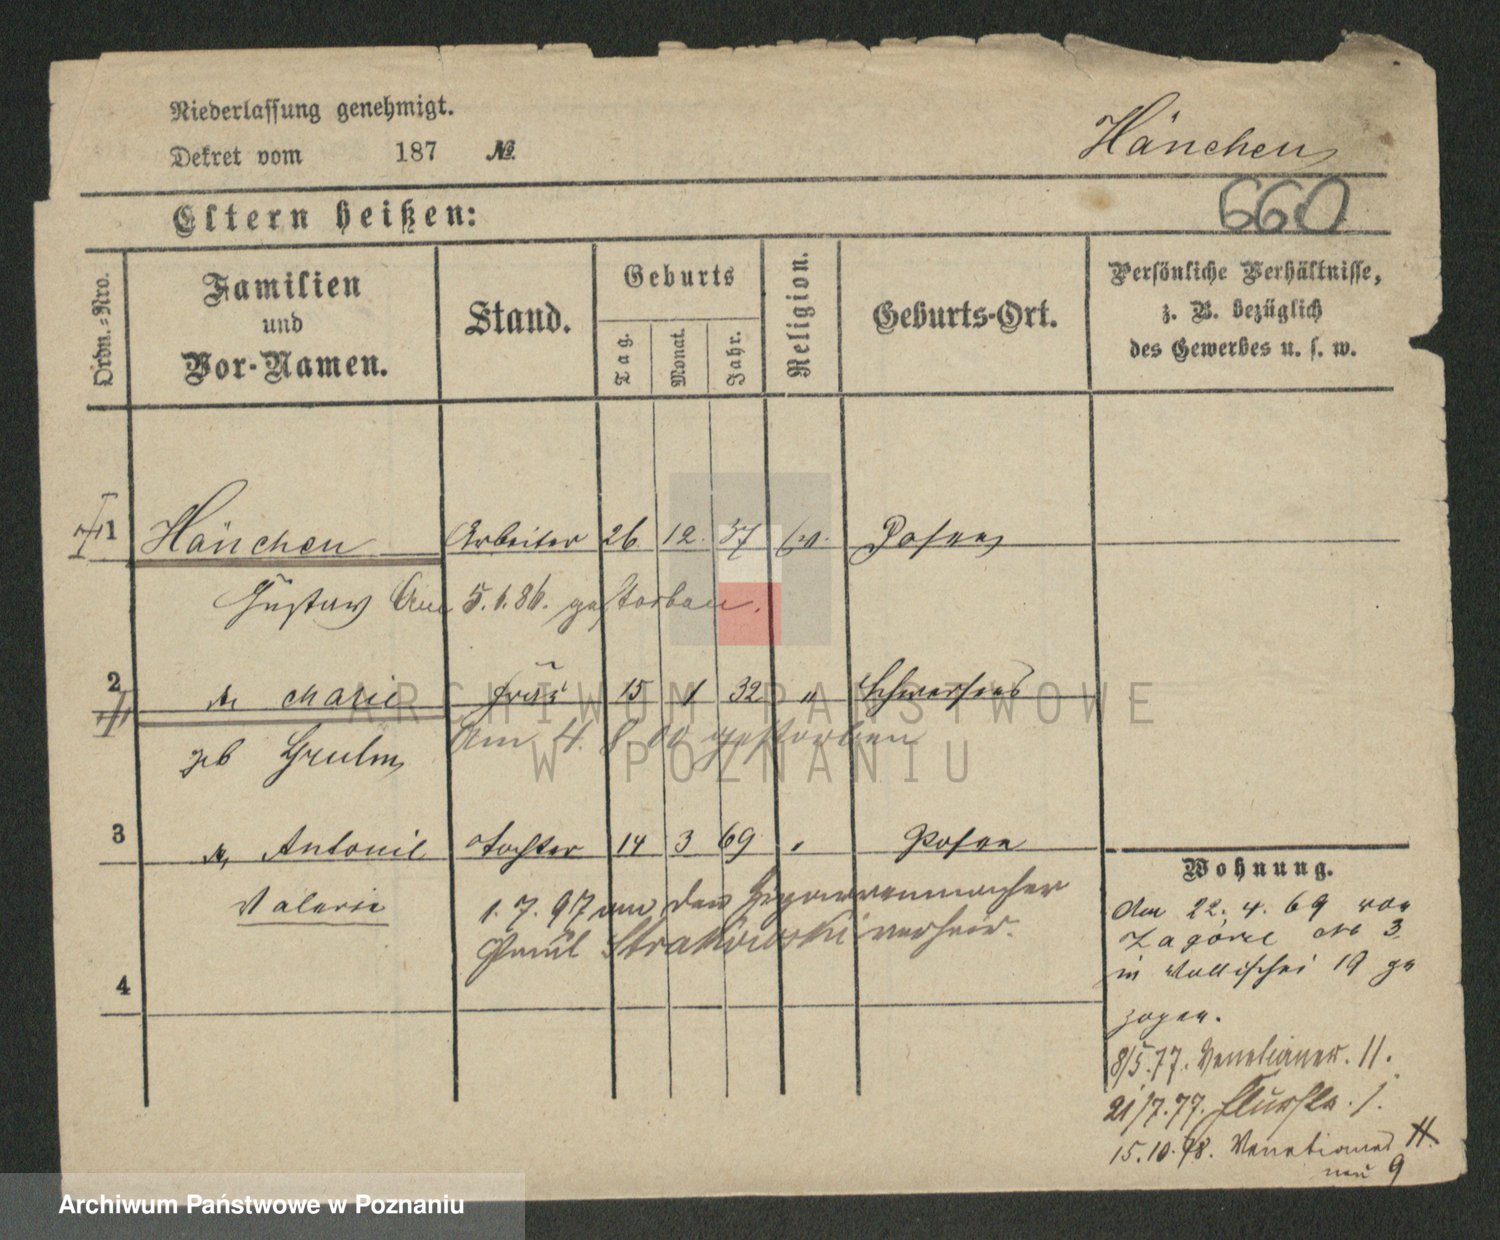 Niederlassung genehmigt.
Dekret vom 187 №
Hänchen
660
Eltern heißen:
Ordn.-Nro.
Familien
und
Vor-Namen.
Stand.
Geburts
Tag.
Monat.
Jahr.
Religion.
Geburts-Ort.
Persönliche Verhältnisse,
z. B. bezüglich
des Gewerbes u. s. w.
1 Hänchen Arbeiter 26 12. 37 ev. Posen
Gustav Am 5.1.86. gestorben.
2 Marie Frau 15 1 32 " Schwersenz
geb Grulm Am 4. 8 00 gestorben
3 Antonie Tochter 14 3 69 " Posen
Valerie 1. 7. 97 an den Zigarrenmacher
Paul Strakowski verheir.
4
Wohnung.
Am 22. 4. 69 von
Zagórze No 3
in Wallischei 19 ge
zogen.
8/5.77. Venetianer. 11.
21/7.77. Flurstr. 1.
15.10.78. Venetianer 11.
neu 9
ARCHIWUM PAŃSTWOWE
W POZNANIU
Archiwum Państwowe w Poznaniu